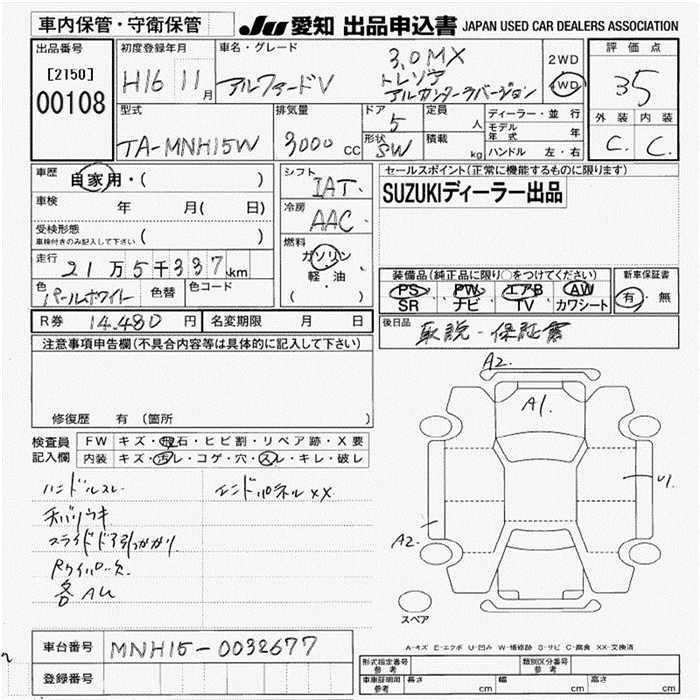 車内保管・守衛保管
JU 愛知 出品申込書 JAPAN USED CAR DEALERS ASSOCIATION
出品番号
[2150]
00108
初度登録年月
H16 11月
車名・グレード
アルファードV
3.0MX
トレゾア
アルカンターラバージョン
2WD
4WD
評価点
35
外装 内装
C. C.
型式
TA-MNH15W
排気量
3000cc
ドア
5
形状
SW
定員
人
積載
kg
ディーラー・並行
モデル年式 年
ハンドル 左・右
車歴
自家用・( )
車検 年 月( 日)
受検形態
車検付きのみ記入して下さい ( )
走行
21万5千337km
色
パールホワイト
色替
色コード
シフト
IAT.
冷房
AAC.
燃料
ガソリン
軽・油
( )
セールスポイント(正常に機能するものに限ります)
SUZUKIディーラー出品
装備品(純正品に限り○をつけてください)
PS PW エアB AW
SR ナビ TV カワシート
新車保証書
有・無
R券 14.480円
名変期限 月 日
後日品
取説・保証書
注意事項申告欄(不具合内容等は具体的に記入して下さい)
修復歴 有 (箇所 )
検査員
記入欄
FW キズ・飛石・ヒビ割・リペア跡・X要
内装 キズ・汚レ・コゲ・穴・スレ・キレ・破レ
ハンドルスレ
エンドパネルXX
スライドドア引っかかり
各AU
A2.
A1.
U1
A2.
スペア
A-キズ E-エクボ U-凹み W-補修跡 S-サビ C-腐食 XX-交換済
車台番号 MNH15-0032677
登録番号
形式指定番号
参考
類別区分番号
参考
車庫証明用
参考
長さ cm 幅 cm 高さ cm